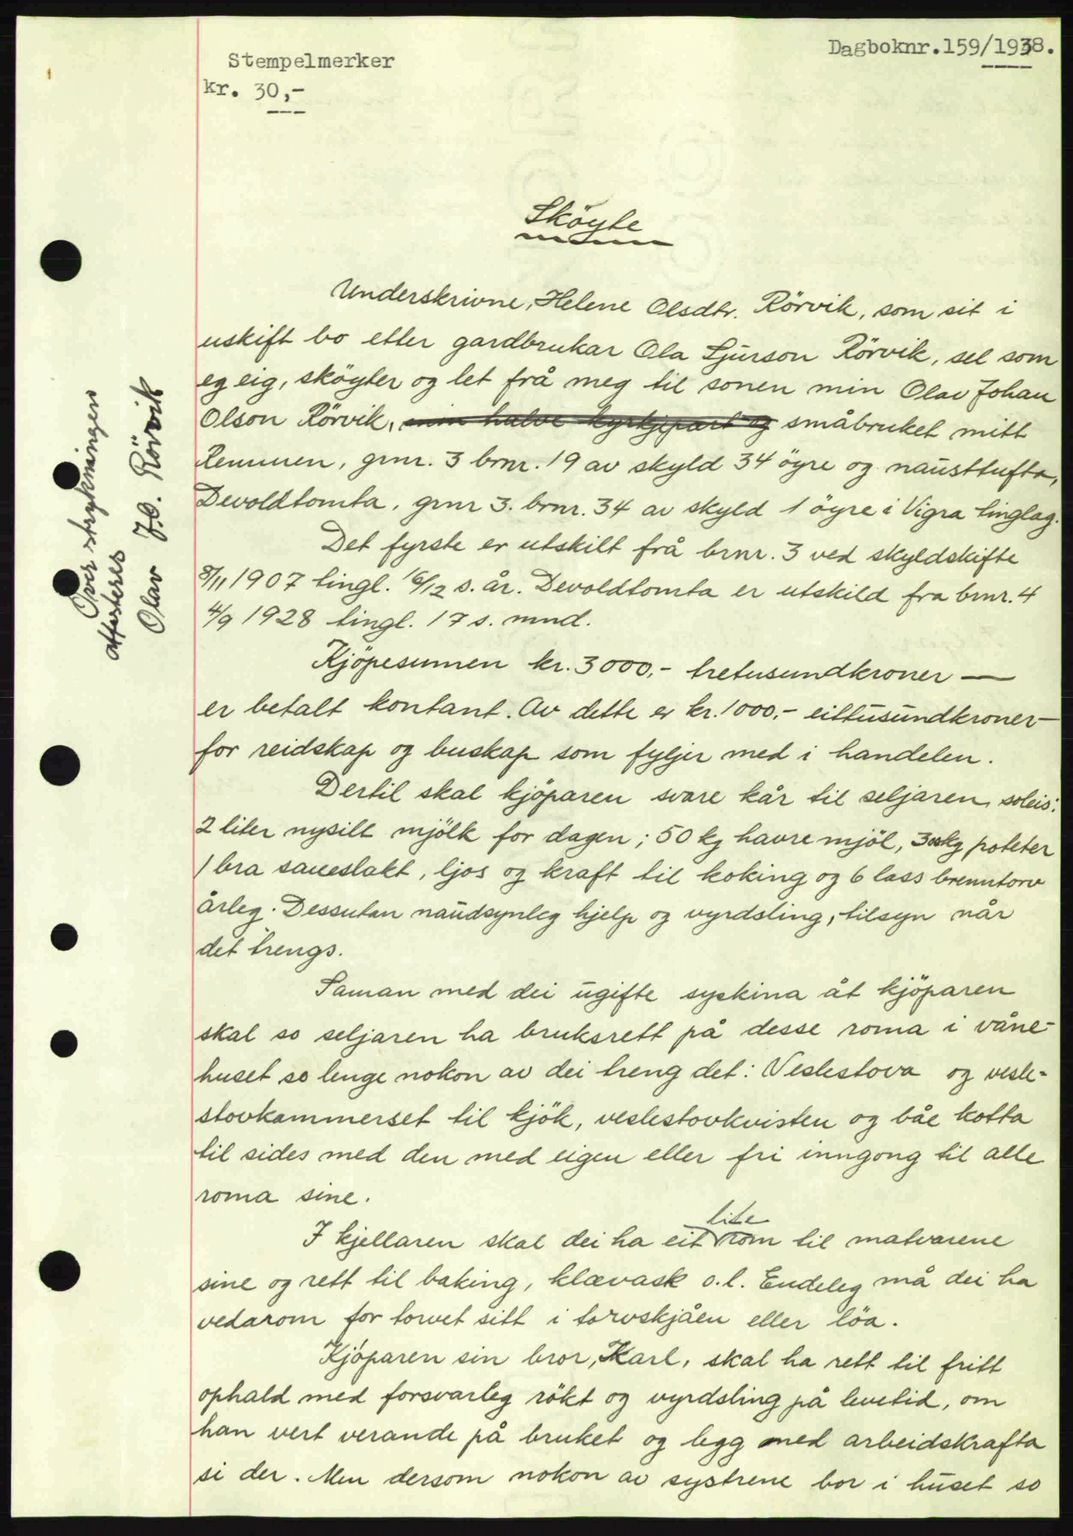 Dagboknr. 159/1938.
Stempelmerker
kr. 30,-
Sköyte
Underskrivne, Helene Olsdtr. Rörvik, som sit i
uskift bo etter gardbrukar Ola Sjurson Rörvik, sel som
eg eig, sköyter og let frå meg til sonen min Olav Johan
Olson Rörvik, min halve kyrkjepart og småbruket mitt
Remmen, grnr. 3 brnr. 19 av skyld 34 öyre og nausttufta,
Devoldtomta, grnr 3. brnr. 34 av skyld 1 öyre i Vigra tinglag.
Det fyrste er utskilt frå brnr. 3 ved skyldskifte
8/11 1907 tingl. 16/12 s. år. Devoldtomta er utskild fra brnr. 4
4/9 1928 tingl. 17 s. mnd.
Kjöpesumen kr. 3000,- tretusundkroner —
er betalt kontant. Av dette er kr. 1000,- eittusundkroner —
for reidskap og buskap som fylgjer med i handelen.
Dertil skal kjöparen svare kår til seljaren, soleis:
2 liter nysilt mjölk for dagen; 50 kg havremjöl, 300kg poteter
1 bra saueslakt, ljos og kraft til koking og 6 lass brenntorv
årleg. Dessutan naudsynleg hjelp og vyrdsling, tilsyn når
det trengs.
Saman med dei ugifte syskina åt kjöparen
skal so seljaren ha bruksrett på desse roma i våne-
huset so lenge nokon av dei treng det: Veslestova og vesle-
stovkammerset til kjök, veslestovkvisten og båe kotta
til sides med den med eigen eller fri inngong til alle
roma sine.
I kjellaren skal dei ha eit lite rom til matvarene
sine og rett til baking, klævask o.l. Endeleg må dei ha
vedarom for torvet sitt i torvskjåen eller löa.
Kjöparen sin bror, Karl, skal ha rett til fritt
ophald med forsvarleg rökt og vyrdsling på levetid, om
han vert verande på bruket og legg med arbeidskrafta
si der. Men dersom nokon av systrene bor i huset so
Overstrykningen
attesteres
Olav J.O. Rörvik